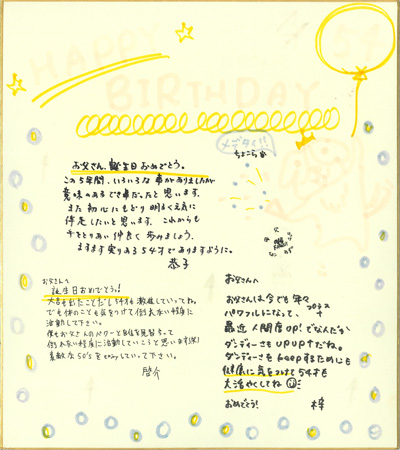 HAPPY
54
BIRTHDAY
メデタイ!!
ちょこら
お父さん、誕生日おめでとう。
この5年間、いろいろな事がありましたが
意味のあるでき事だったと思います。
また初心にもどり明るく元気に
伝足したいと思います。これからも
手をとりあい仲良く歩みましょう。
ますます実りある54才でありますように。
恭子
お父さんへ
誕生日おめでとう!
大台も出たことだし54才も激進していってね。
でも体のことも気をつけて倒れない程度に
活動して下さい。
僕もお父さんのパワーと自信を見習って
倒れない程度に活動していこうと思います(笑)
素敵な50'sをenjoyしていって下さい。
啓介
お父さんへ
お父さんは今でも年々
パワフルになって、プラチナ
最近人間度UP!でなんだか
ダンディーさもUPUPだね。
ダンディーさもkeepするためにも
健康に気をつけて54才も
大活やくしてね
おめでとう!
梓